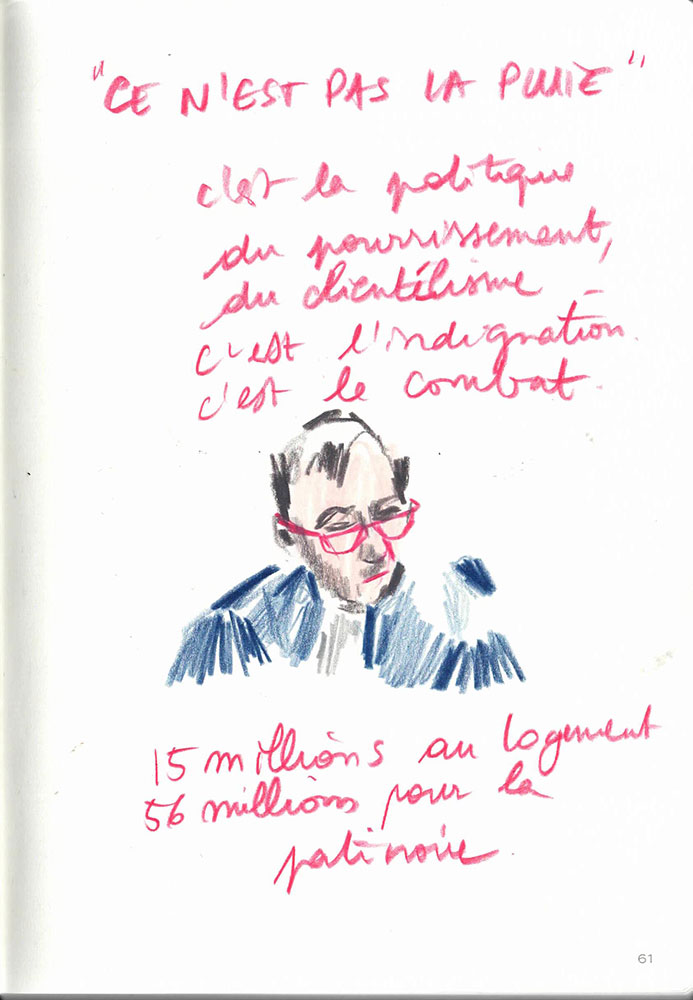 "CE N'EST PAS LA PLUIE"
c'est la politique
du pourrissement,
du clientélisme -
c'est l'indignation.
c'est le combat.
15 millions au logement
56 millions pour la
patinoire
61